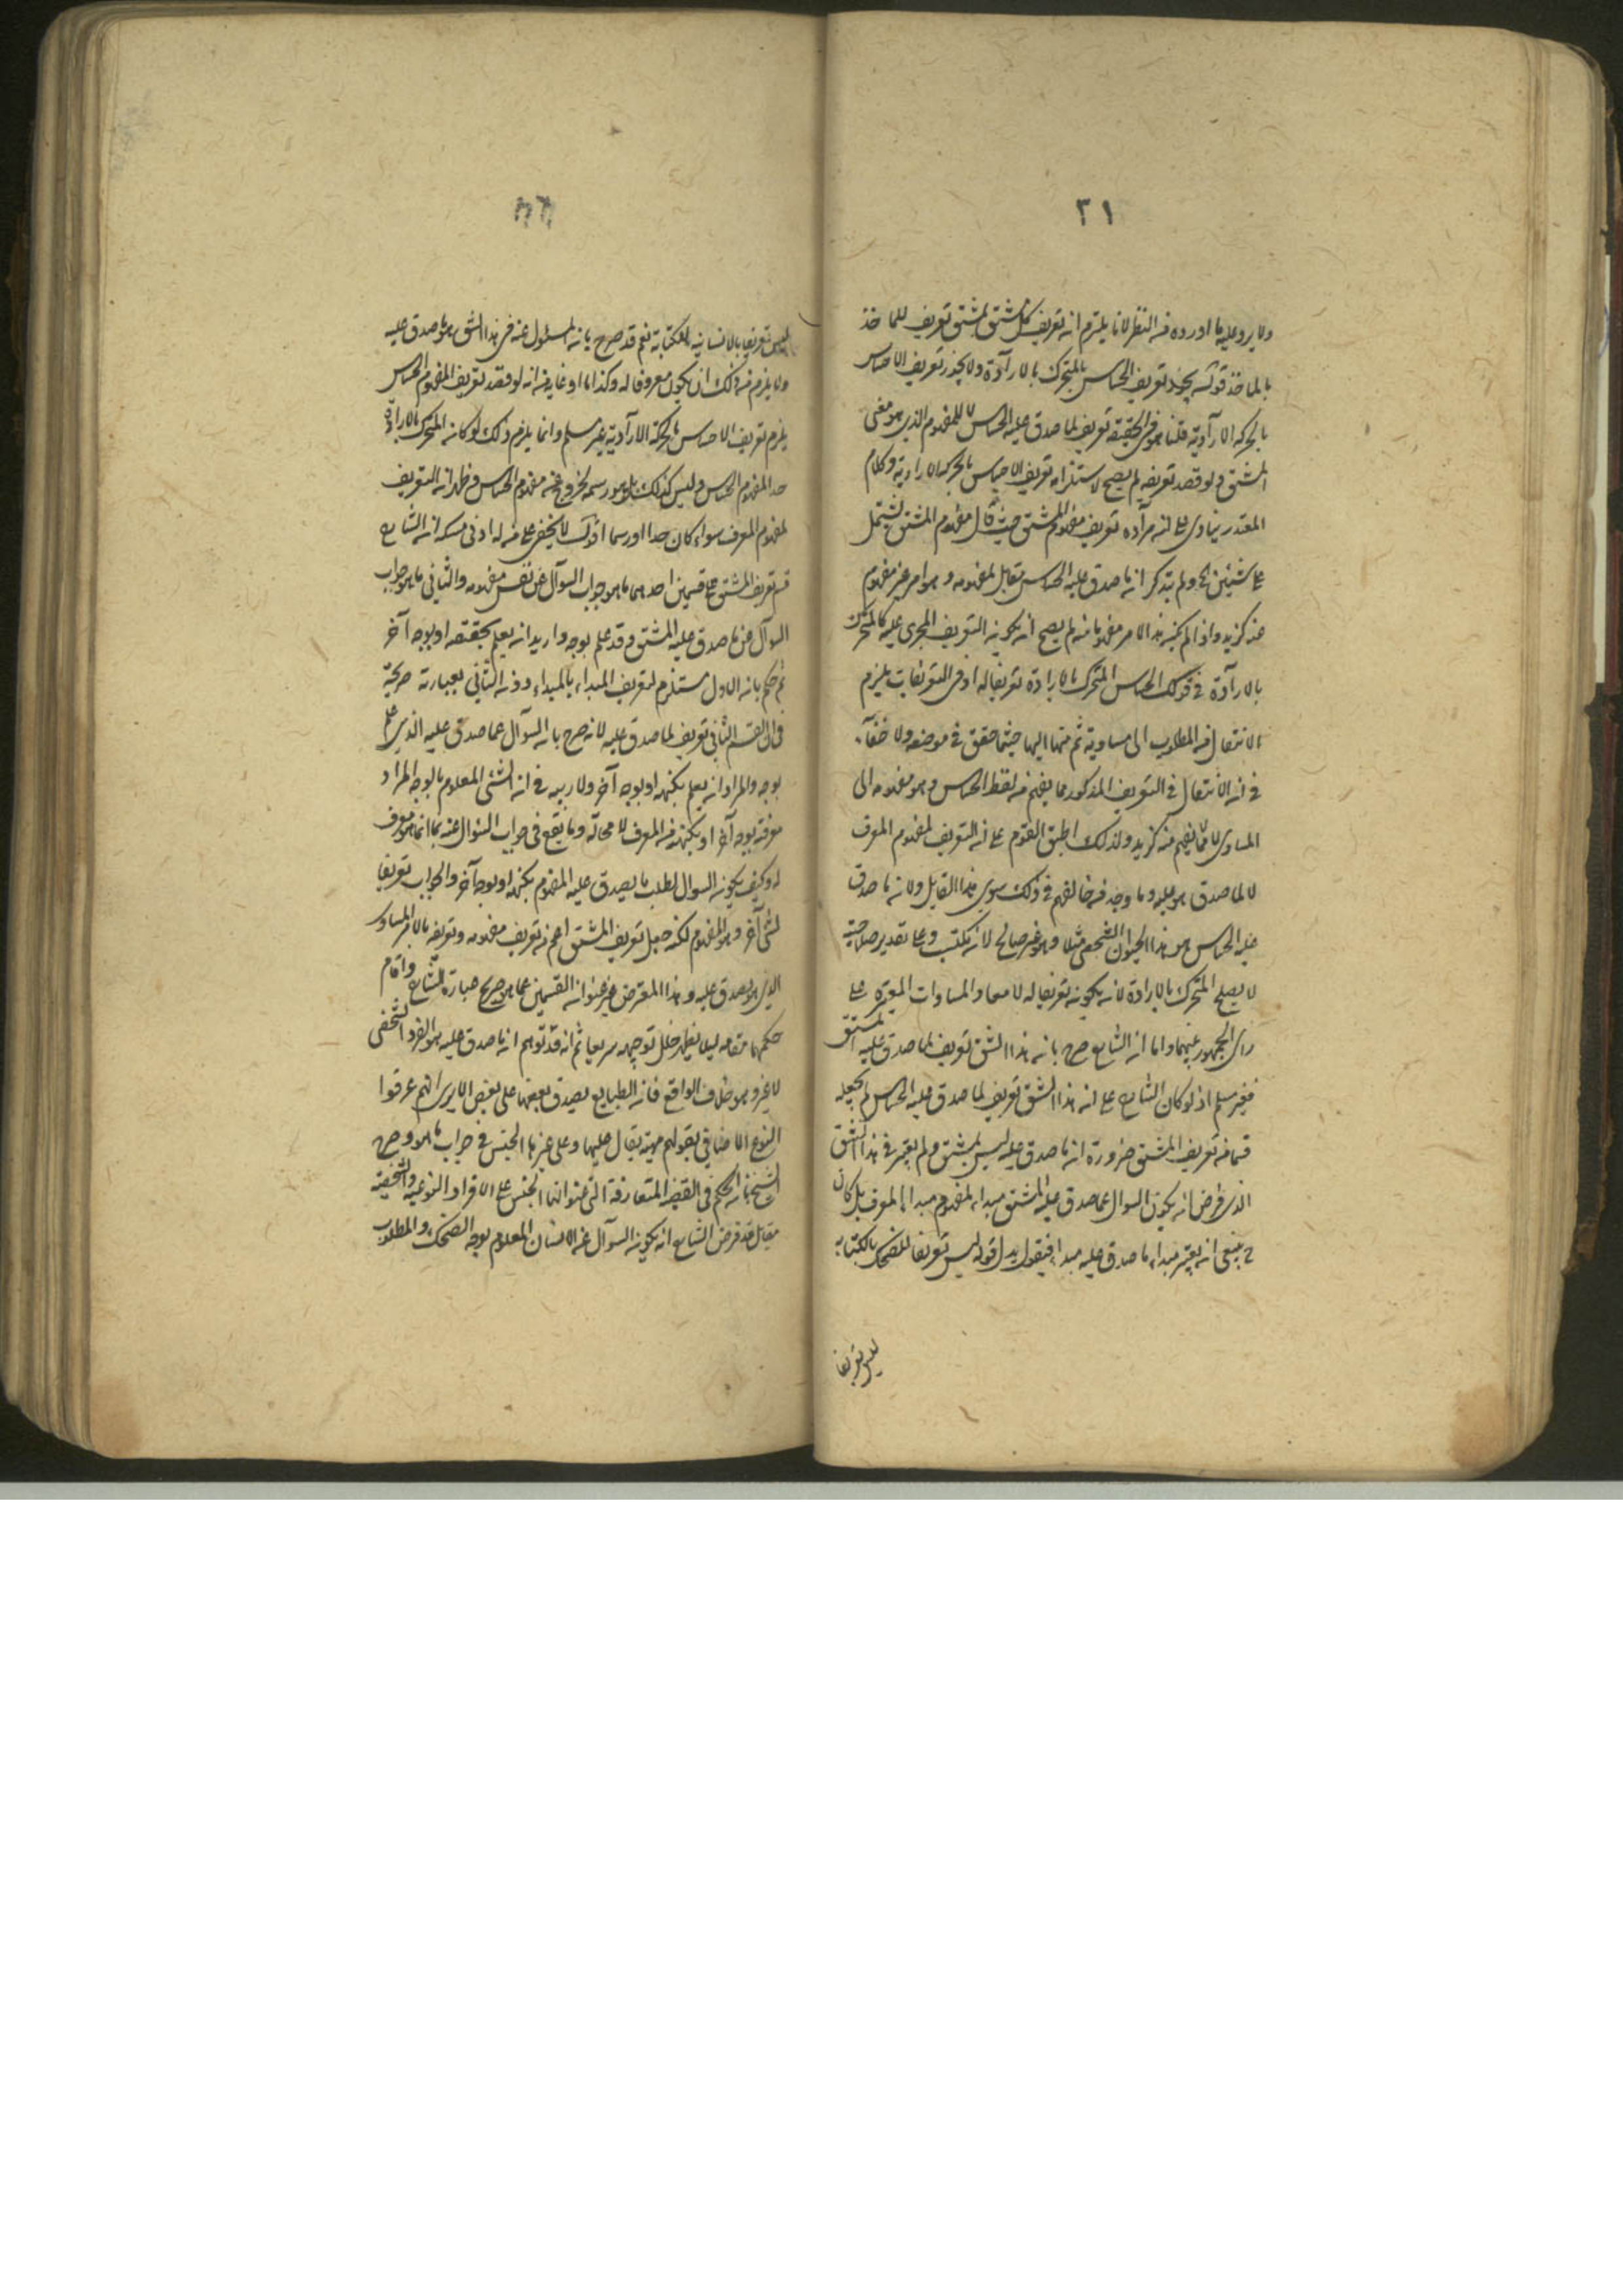 ٣١
ولا يرد عليه ما اورده من النظر لانا يلتزم ان تعريف كل مشتق بمشتق تعريف للماخذ
بالماخذ قوله يجوز تعريف الحساس بالمتحرك بالارآدة ولا يجوز تعريف الاحساس
بالحركة الارآدية قلنا هو فى الحقيقة تعريف لما صدق عليه الحساس لا للمفهوم الذى هو معنى
المشتق ولو قصد تعريفه لم يصح لاستلزامه تعريف الاحساس بالحركة الارادية وكلام
المعتذر ينادى على ان مرآده تعريف مفهوم المشتق حيث قال مفهوم المشتق يشتمل
على شيئين ولم يتذكر ان ما صدق عليه الحساس مقابل لمفهومه وهو امر غير مفهوم
عنه كزيد واذا لم يكن هذا الامر مفهوما منه لم يصح ان يكون التعريف المجرى عليه كالمتحرك
بالارآدة فى قولك الحساس المتحرك بالارادة تعريفا له اذ فى التعريفات يلزم
الانتقال من المطلوب الى مساوية ثم منها اليها حيثما حقق فى موضعه ولا خفآء
فى ان الانتقال فى التعريف المذكور مما يفهم من لفظ الحساس وهو مفهومه الى
المساوى لا مما لا يفهم منه كزيد ولذلك اطبق القوم على ان التعريف لمفهوم المعرف
لا لما صدق هو عليه وما وجد من خالفهم فى ذلك سوى هذا القايل ولان ما صدق
عليه الحساس هو هذا الحيوان الشخصى مثلا وهو غير صالح لان يكتسب وعلى تقدير صلاحيته
لا يصلح المتحرك بالارادة لان يكون تعريفا له لامعا والمساوات المعتبرة على
راى الجمهور بينهما واما ان الشارح صرح بان هذا الشق تعريف لما صدق عليه المشتق
فغير مسلم اذ لو كان الشارح على ان هذا الشق تعريف لما صدق عليه الحساس لم يجعله
قسما من تعريف المشتق ضرورة ان ما صدق عليه ليس بمشتق ولم يعتبر فى هذا الشق
الذى فرض ان يكون السوال عما صدق عليه المشتق مبداء لمفهوم مبدا المعرف بل كان
ح ينبغى ان يعتبر مبداء ما صدق عليه مبدا فيقول بدل قوله ليس تعريفا للضحك بالكتابة
ليس تعريفا
ليس تعريفا بالانسانية للكتابة نعم قد صرح بان المسئول عنه فى هذا الشق هو ما صدق عليه
ولا يلزم من ذلك ان يكون معروفا له وكذا ما ادعاه من انه لو قصد تعريف المفهوم الحساس
يلزم تعريف الاحساس بالحركة الارآدية غير مسلم وانما يلزم ذلك لو كان المتحرك بالارادة
حد المفهوم الحساس وليس كذلك بل هو رسمه لخروج عنه مفهوم الحساس وظهر ان التعريف
لمفهوم المعرف سواء كان حدا او رسما اقول لا يخفى على من له ادنى مسكة ان الشارح
قسم تعريف المشتق على قسمين احدهما ما هو جواب السوآل عن نفس مفهومه والثانى ما هو جواب
السوآل عن ما صدق عليه المشتق وقد علم بوجه واريد ان يعلم بحقيقته او بوجه آخر
ثم حكم بان الاول مستلزم لتعريف المبداء بالمبداء دون الثانى بعبارته صريحة
فى ان القسم الثانى تعريف لما صدق عليه لانه صرح بان السوآل عما صدق عليه الذى علم
بوجه والمراد ان يعلم بكنهه او بوجه آخر ولا ريب فى ان الشئ المعلوم بالوجه المراد
معرفته بوجه آخر او بكنهه من المعرف لا محالة وما يقع فى جواب السئوال عنه بما انما هو معرف
له وكيف يكون السوال لطلب ما يصدق عليه المفهوم بكنهه او بوجه آخر والجواب تعريفا
لشئ آخر وهو المفهوم لكنه جعل تعريف المشتق اعم من تعريف مفهومه وتعريفه بالامر المساوى
الذى هو يصدق عليه وهذا المعترض غير عنوان القسمين عما هو صريح عبارة الشارح واقام
حكمهما مقامه ليلا يظهر خلل توجيهه سريعا ثم انه قد توهم ان ما صدق عليه هو الفرد الشخصى
لا غير وهو خلاف الواقع فان الطبايع يصدق بعضها على بعض الا يرى انهم عرفوا
النوع الاضافى بقولهم مهية يقال عليها وعلى غيرها الجنس فى جواب ما هو وصرح
الشيخ بان الحكم فى القضية المتعارفة التى عنوانها الجنس على الافراد النوعية والشخصية
مقابل قد فرض الشارح ان يكون السوآل عن الانسان المعلوم بوجه الضحك والمطلوب